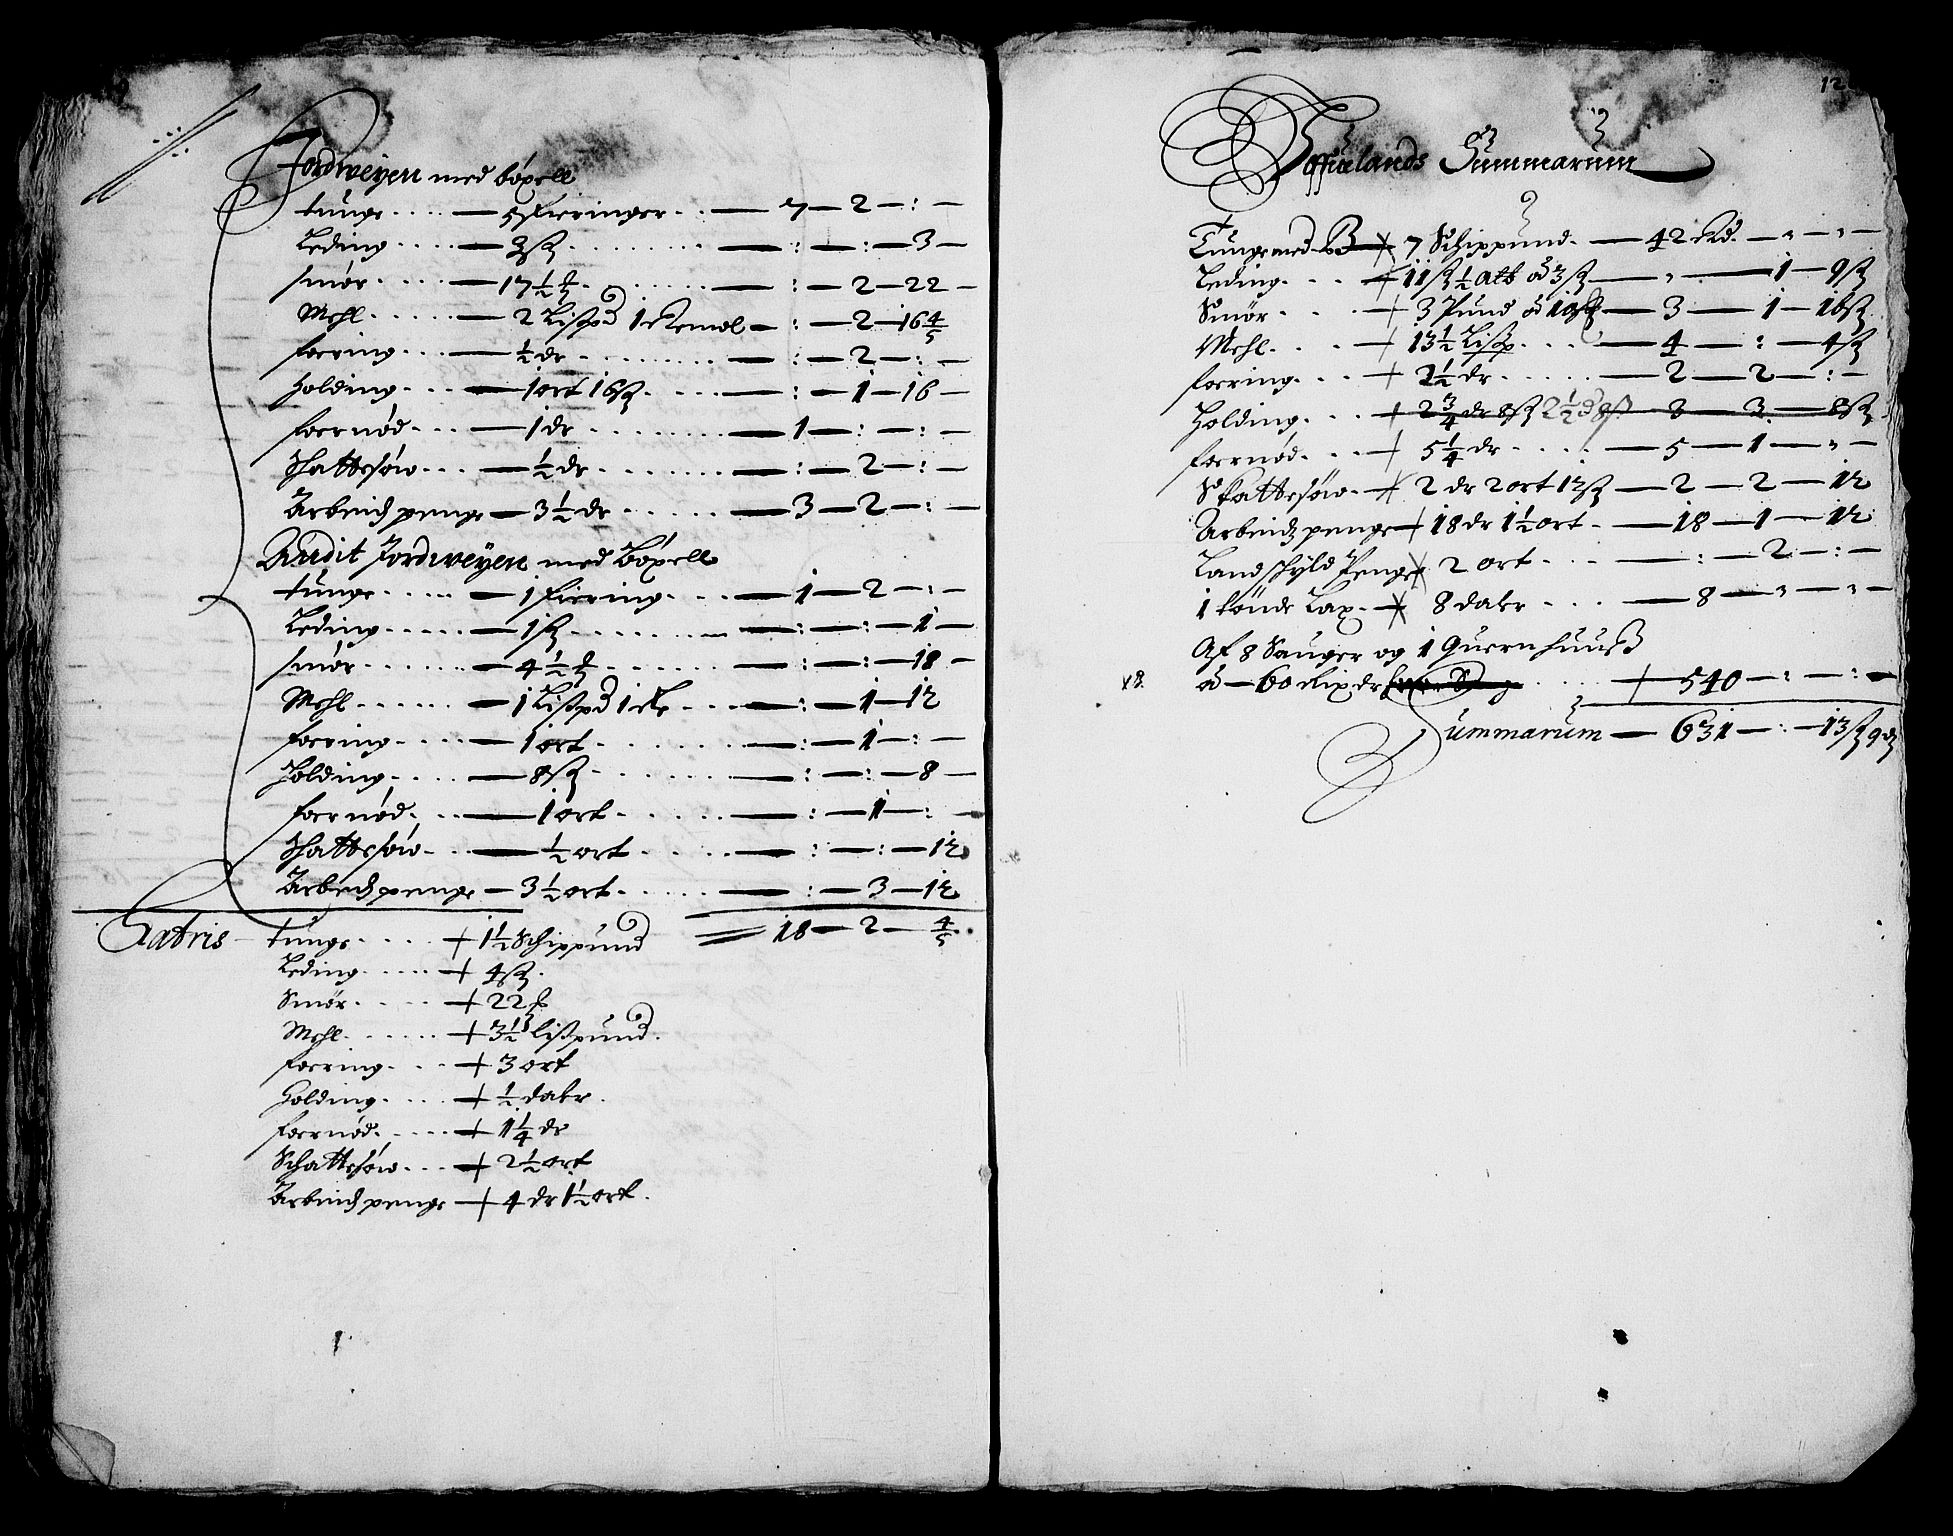 Jordweyen med böxell
tunge .... — 5 fieringer .. — 7 — 2 — : —
Leding .... — 3 ß ........ — : — : — 3 —
smör .... — 17 ½ ℔ ...... — : — 2 — 22 —
Mehl ..... — 2 Lißpd 1 Remol — : — 2 — 16 4/5
foering ... — ½ dr ........ — : — 2 — : —
Holding .... — 1 ort 16 ß ..... — : — 1 — 16 —
foernöd ... — 1 dr ........ — 1 — : — : —
Schattesöw ... — ½ dr ....... — : — 2 — : —
Arbeidspenge — 3 ½ dr ..... — 3 — 2 — : —
Jordweyen med Böxell
tunge ..... — 1 fiering .... — 1 — 2 — : —
Leding ..... — 1 ß ........ — : — : — 1 —
smör ....... — 4 ½ ℔ ....... — : — : — 18 —
Mehl ...... — 1 Lißpd 1 Re ... — : — 1 — 12
foering .... — 1 ort ....... — : — 1 — : —
Holding .... — 8 ß ....... — : — : — 8 —
foernöd ... — 1 ort ...... — : — 1 — : —
Schattesöw ... — ½ ort ..... — : — : — 12
Arbedspenge — 3 ½ ort ..... — : — 3 — 12
18 — 2 — 4/5
Lateris tunge .... + 1 ½ Schippund
Leding ..... + 4 ß
Smör .... + 22 ℔
Mehl ...... + 3 ½ lißpund
foering ... + 3 ort
Holding .... + ½ daler
foernöd .... + 1 ¼ dr
Schattesöw ... + 2 ½ ort
Arbeidspenge + 4 dr 1 ½ ort
12
Toffuelands Summarum
Tunge med B + 7 Schippund — 42 Rd — " — " —
Leding ... + 11 ß ½ alb od 3 ß — " — 1 — 9 ß
Smör ... + 3 Pund od 10 ℔ — 3 — 1 — 16 ß
Mehl ... + 13 ½ Lißp .... — 4 — : — 4 ß
foering ... + 2 ½ dr ..... — 2 — 2 — : —
Holding ... + 2 ¾ dr 8 ß 2 ½ d 8 ß — 3 — 8 ß
foernöd ... + 5 ¼ dr .... — 5 — 1 — " —
Skattesöw + 2 dr 2 ort 12 ß — 2 — 2 — 12
Arbeidspenge + 18 dr 1 ½ ort — 18 — 1 — 12
Landskyld Penge + 2 ort ... — : — 2 — : —
1 tönde Lax + 8 daler ... — 8 — " — " —
Af 8 Sauger og 1 Quernhuuß
od — 60 Rixdr .... + 540 — : — : —
Summarum — 631 — : — 13 ß 9 d